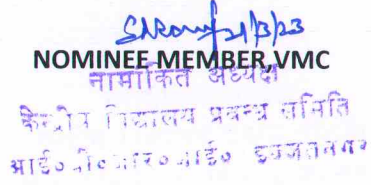 21/3/23
NOMINEE MEMBER,VMC
नामांकित अध्यक्ष
केन्द्रीय विद्यालय प्रबन्ध समिति
आई०वी०आर०आई० इज्जतनगर